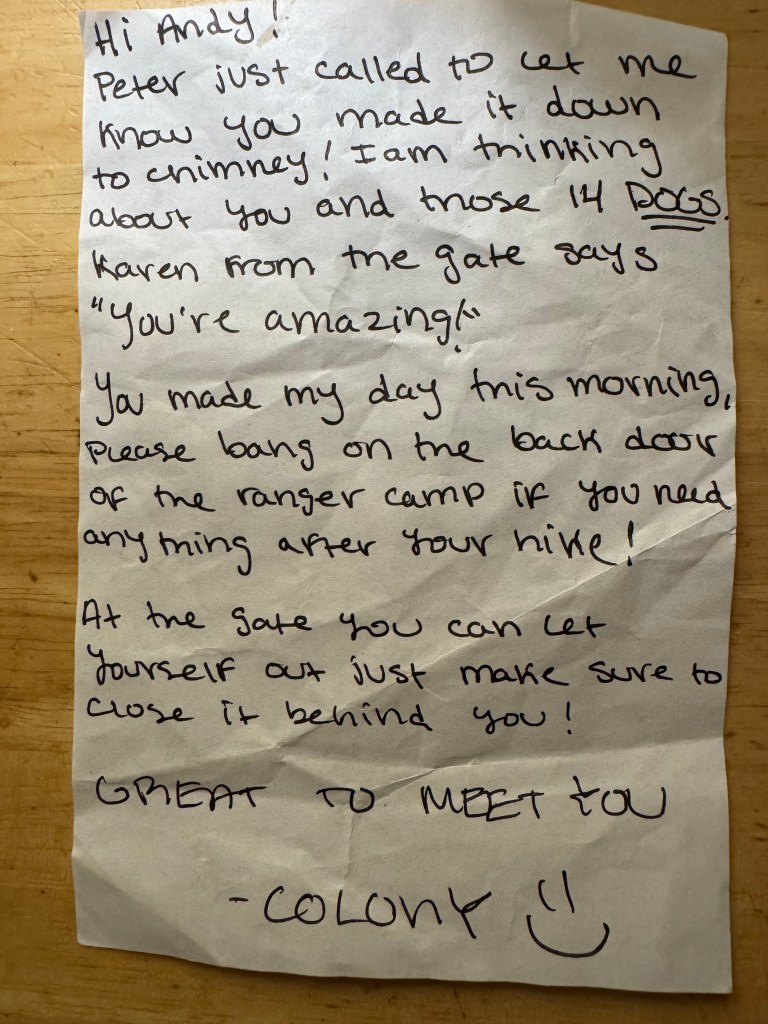 Hi Andy!
Peter just called to let me
know you made it down
to chimney! I am thinking
about you and those 14 DOGS.
Karen from the gate says
"You're amazing!"
You made my day this morning,
please bang on the back door
of the ranger camp if you need
anything after your hike!
At the gate you can let
yourself out just make sure to
close it behind you!
GREAT TO MEET YOU
-COLONY